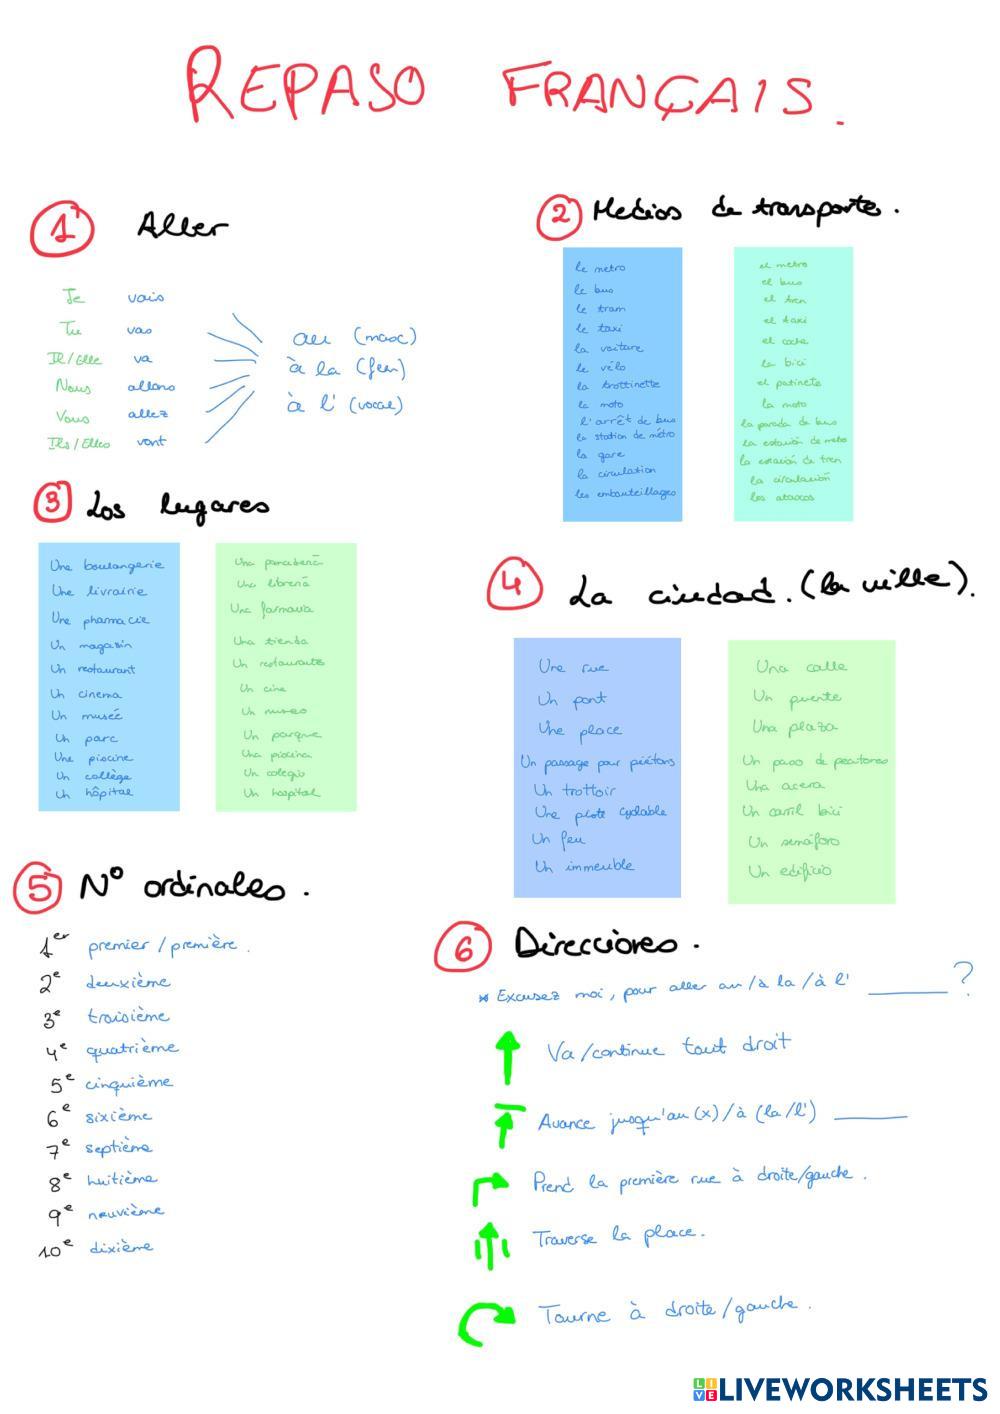 REPASO FRANÇAIS.
1 Aller
Je vais
Tu vas
Il/Elle va
Nous allons
Vous allez
Ils/Elles vont
au (masc)
à la (fem)
à l' (vocal)
2 Medios de transporte.
le metro
le bus
le tram
le taxi
la voiture
le vélo
la trottinette
la moto
l'arrêt de bus
la station de métro
la gare
la circulation
les embouteillages
el metro
el bus
el tren
el taxi
el coche
la bici
el patinete
la moto
la parada de bus
la estación de metro
la estación de tren
la circulación
los atascos
3 Los lugares
Une boulangerie
Une livrairie
Une pharmacie
Un magasin
Un restaurant
Un cinema
Un museé
Un parc
Une piscine
Un collège
Un hôpital
Una panadería
Una librería
Una farmacia
Una tienda
Un restaurante
Un cine
Un museo
Un parque
Una piscina
Un colegio
Un hospital
4 La ciudad. (la ville).
Une rue
Un pont
Une place
Un passage pour piétons
Un trottoir
Une piste cyclable
Un feu
Un immeuble
Una calle
Un puente
Una plaza
Un paso de peatones
Una acera
Un carril bici
Un semáforo
Un edificio
5 Nº ordinales.
1er premier / première.
2e deuxième
3e troisième
4e quatrième
5e cinquième
6e sixième
7e septième
8e huitième
9e neuvième
10e dixième
6 Direcciones.
* Excusez moi, pour aller au/à la/à l' ______?
Va/continue tout droit
Avance jusqu'au (x)/à (la/l') ______
Prend la première rue à droite/gauche.
Traverse la place.
Tourne à droite/gauche.
LIVE LIVEWORKSHEETS